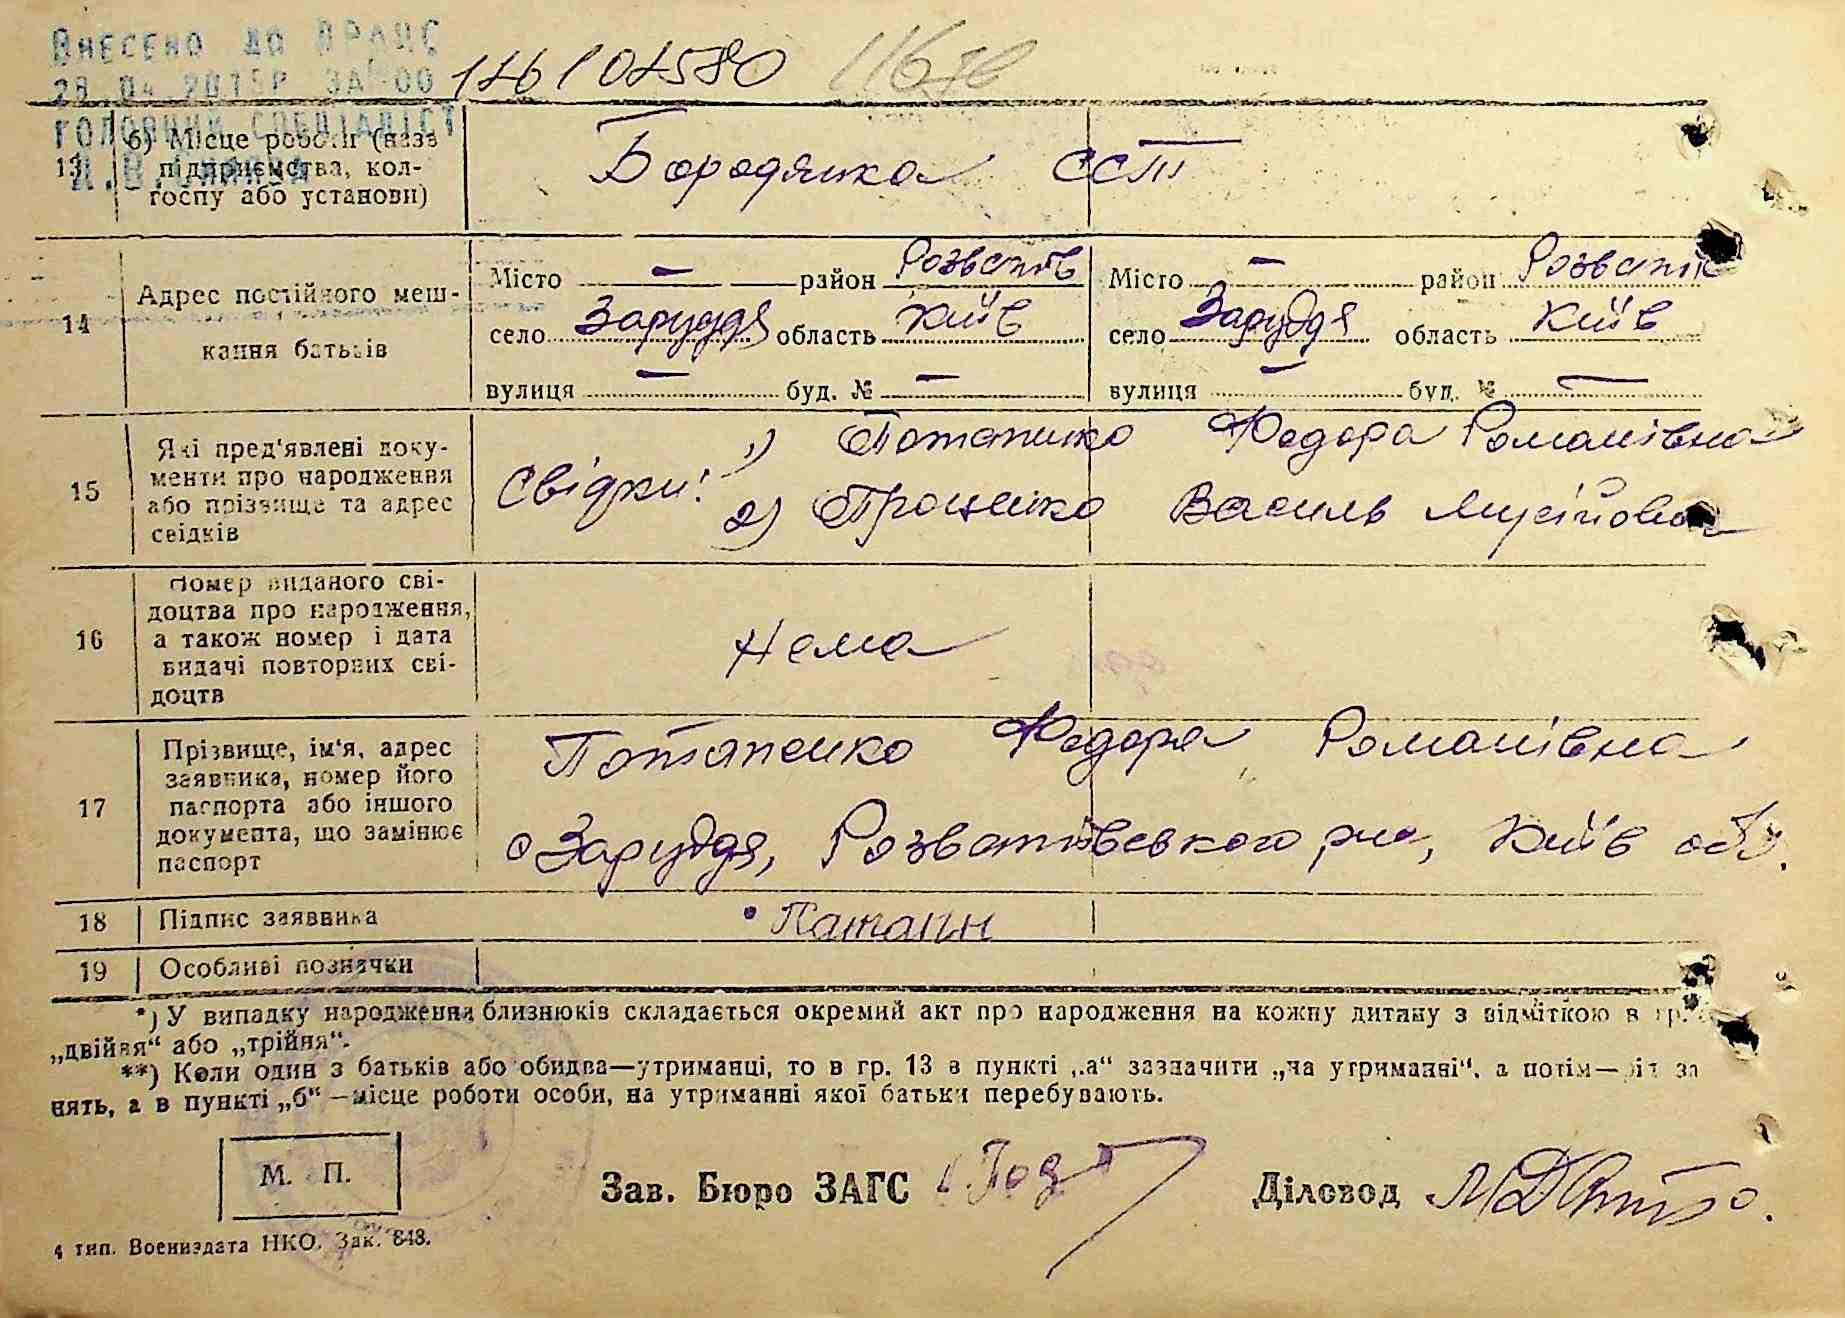 ВНЕСЕНО ДО ДРАЦС
28.04.2015Р ЗА 00
ГОЛОВНИЙ СПЕЦІАЛІСТ
13 б) Місце роботи (назва підприємства, колгоспу або установи)
Бородянка ССТ
14 Адрес постійного мешкання батьків
Місто — район Розважів
село Заруддя область Київ
вулиця — буд. № —
Місто — район Розважів
село Заруддя область Київ
вулиця — буд. № —
15 Які пред'явлені документи про народження або прізвище та адрес свідків
Свідки: 1) Потапенко Федора Романівна
2) Проценко Василь Мусійович
16 Номер виданого свідоцтва про народження, а також номер і дата видачі повторних свідоцтв
Нема
17 Прізвище, ім'я, адрес заявника, номер його паспорта або іншого документа, що замінює паспорт
Потапенко Федора Романівна
с Заруддя, Розважівського р-но, Київ обл.
18 Підпис заявника
19 Особливі позначки
*) У випадку народження близнюків складається окремий акт про народження на кожну дитину з відміткою в гр.
„двійня“ або „трійня“.
**) Коли один з батьків або обидва—утриманці, то в гр. 13 в пункті „а“ зазначити „на утриманні“, а потім—рід за
нять, а в пункті „б“—місце роботи особи, на утриманні якої батьки перебувають.
М. П.
Зав. Бюро ЗАГС
Діловод
4 тип. Воениздата НКО. Зак. 848.